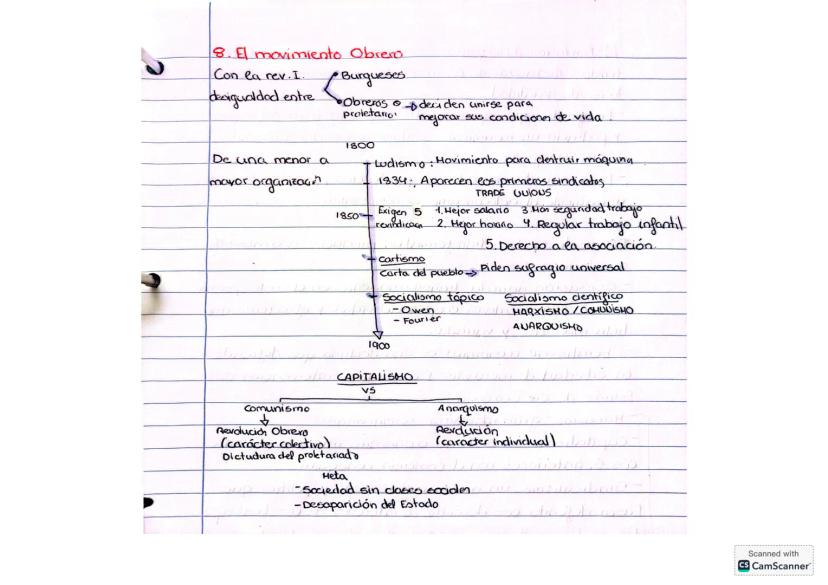 8. El movimiento Obrero
Con la rev. I.
desigualdad entre
Burgueses
Obreros o → deciden unirse para
proletario: mejorar sus condiciones de vida.
1800
De una menor a
mayor organización
Ludismo: Movimiento para destruir máquina
1834: Aparecen los primeros sindicatos
TRADE UNIONS
1850
Exigen 5 1. Mejor salario 3 Más seguridad trabajo
2. Mejor horario 4. Regular trabajo infantil
5. Derecho a la asociación.
Cartismo
Carta del pueblo → Piden sufragio universal
Socialismo tópico Socialismo científico
- Owen MARXISMO / COMUNISMO
- Fourier
ANARQUISMO
1900
CAPITALISMO
VS
Comunismo Anarquismo
Revolución Obrero Revolución
(carácter colectivo) (caracter individual)
Dictudura del proletariado
Meta
- Sociedad sin clases sociales
- Desaparición del Estado
Scanned with
CS CamScanner